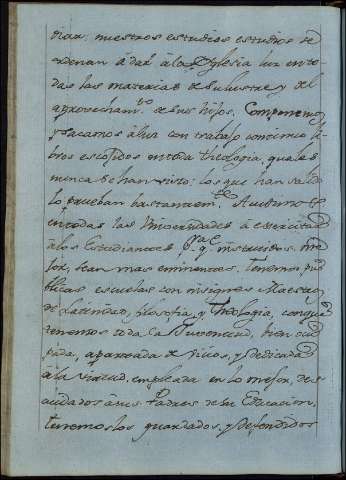 diar: nuestros estudios estudios se
ordenan â dar â la Yglesia luz en to-
das las materias de su lustre y del
aprovecham.to de sus hijos. Componemos
y sacamos â luz con trabajo continuo li-
bros escojidos en toda theologia, quales
nunca se han visto: los que han salido
lo prueban bastantem.te Acudimos
en todas las Vniversidades â exercitar
â los Estudiantes p.a q.e instruidos me-
jor, sean mas eminentes. Tenemos pu-
blicas escuelas con insignes Maestros
de Latinidad, filosofia, y Theologia, con que
tenemos toda la Juventud, bien ocu-
pada, apartada de vicios, y dedicada
â la virtud, empleada en lo mejor, des-
cuidados â sus Padres de su Educacion,
tenemoslos guardados, y defendidos